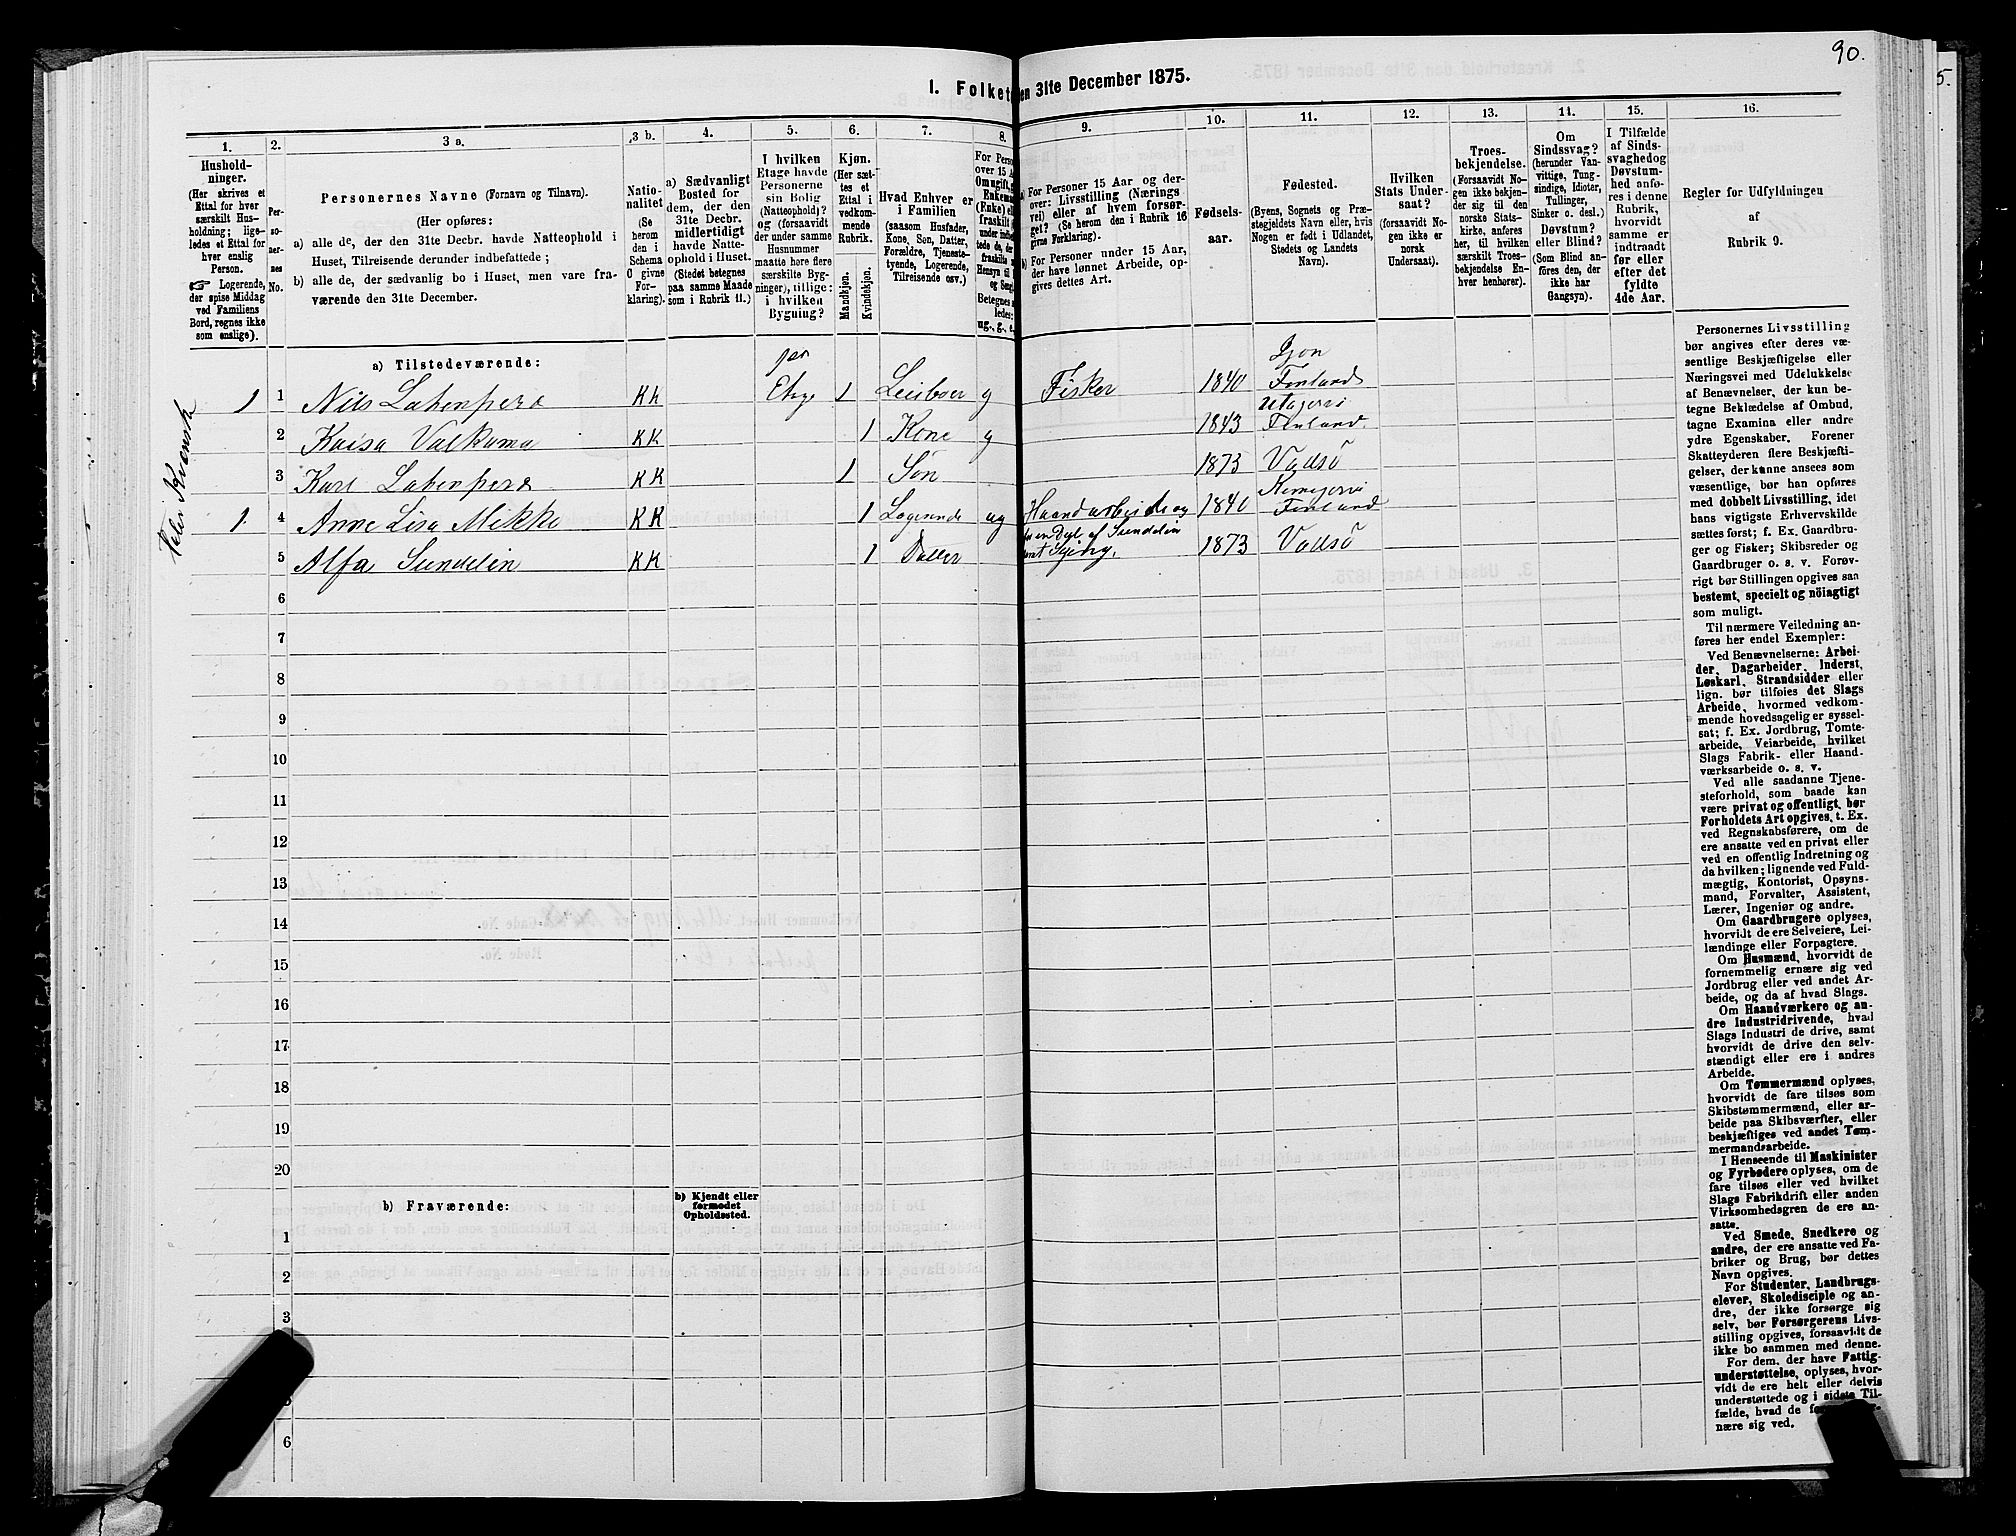 90.
5.
I. Folket
en 31te December 1875.
1.
2.
3 a.
3 b.
4.
5.
6.
7.
8.
9.
10.
11.
12.
13.
14.
15.
16.
Hushold-
ninger.
(Her skrives et
Ettal for hver
særskilt Hus-
holdning; lige-
ledes et Ettal for
hver enslig
Person.
☞ Logerende,
der spise Middag
ved Familiens
Bord, regnes ikke
som enslige).
Per-
so-
ner-
nes
No.
Personernes Navne (Fornavn og Tilnavn).
(Her opføres:
a) alle de, der den 31te Decbr. havde Natteophold i
Huset, Tilreisende derunder indbefattede;
b) alle de, der sædvanlig bo i Huset, men vare fra-
værende den 31te December.
Natio-
nalitet
(Se
herom
den i
Schema
C givne
For-
klaring).
a) Sædvanligt
Bosted for
dem, der den
31te Decbr.
midlertidigt
havde Natte-
ophold i Huset.
(Stedet betegnes
paa samme Maade
som i Rubrik 11.)
I hvilken
Etage havde
Personerne
sin Bolig
(Natteophold)?
og (forsaavidt
der under samme
Husnummer
maatte høre flere
særskilte Byg-
ninger), tillige:
i hvilken
Bygning?
Kjøn.
(Her sæt-
tes et
Ettal i
vedkom-
mende
Rubrik.
Mandkjøn.
Kvindekjøn.
Hvad Enhver er
i Familien
(saasom Husfader,
Kone, Søn, Datter,
Forældre, Tjeneste-
tyende, Logerende,
Tilreisende osv.)
For Perso
over 15 Aa
Om ugift, g
Enkem
(Enke) el
fraskilt
under indb
tede de, d
fraskilte
Hensyn til
og Sæng
Betegnes s
ledes:
ug., g., e.
a) For Personer 15 Aar og der-
over: Livsstilling (Nærings-
vei) eller af hvem forsør-
get? (Se herom den i Rubrik 16
givne Forklaring).
b) For Personer under 15 Aar,
der have lønnet Arbeide, op-
gives dettes Art.
Fødsels-
aar.
Fødested.
(Byens, Sognets og Præ-
stegjeldets Navn eller, hvis
Nogen er født i Udlandet,
Stedets og Landets
Navn).
Hvilken
Stats Under-
saat?
(forsaavidt No-
gen ikke er
norsk
Undersaat).
Troes-
bekjendelse.
(Forsaavidt No-
gen ikke bekjen-
der sig til den
norske Stats-
kirke, anføres
her, til hvilken
særskilt Troes-
bekjendelse En-
hver henhører).
Om
Sindssvag?
(herunder Van-
vittige, Tung-
sindige, Idioter,
Tullinger,
Sinker o. desl.)
Døvstum?
eller Blind?
(Som Blind an-
føres den, der
ikke har
Gangsyn).
I Tilfælde
af Sinds-
svaghed og
Døvstum-
hed anfø-
res i denne
Rubrik,
hvorvidt
samme er
indtraadt
før eller
efter det
fyldte
4de Aar.
Regler for Udfyldningen
af
Rubrik 9.
a) Tilstedeværende:
1 1 Nils Lakenperæ KK 1ste Etage 1 Leieboer g Fisker 1840 Finland
2 Kaisa Valkama KK 1 Kone g 1843 Finland
3 Karl Lakenperæ KK 1 Søn 1873 Vadsö
1. 4 Anne Lisa Mikko KK 1 Logerende ug Haandarbeide og 1840 Kemijervi Finland
5 Alfa Sundelin KK 1 Datter 1873 Vadsö
6
7
8
9
10
11
12
13
14
15
16
17
18
19
20
b) Fraværende:
b) Kjendt eller
formodet
Opholdssted.
1
2
3
6
Personernes Livsstilling
bør angives efter deres væ-
sentlige Beskjæftigelse eller
Næringsvei med Udelukkelse
af Benævnelser, der kun be-
tegne Beklædelse af Ombud,
tagne Examina eller andre
ydre Egenskaber. Forener
Skatteyderen flere Beskjæfti-
gelser, der kunne ansees som
væsentlige, bør han opføres
med dobbelt Livsstilling, idet
hans vigtigste Erhvervskilde
sættes først; f. Ex. Gaardbru-
ger og Fisker; Skibsreder og
Gaardbruger o. s. v. Forøv-
rigt bør Stillingen opgives saa
bestemt, specielt og nöiagtigt
som muligt.
Til nærmere Veiledning an-
føres her endel Exempler:
Ved Benævnelserne: Arbei-
der, Dagarbeider, Inderst,
Løskarl, Strandsidder eller
lign. bør tilføies det Slags
Arbeide, hvormed vedkom-
mende hovedsagelig er syssel-
sat; f. Ex. Jordbrug, Tomte-
arbeide, Veiarbeide, hvilket
Slags Fabrik- eller Haand-
værksarbeide o. s. v.
Ved alle saadanne Tjene-
steforhold, som baade kan
være privat og offentligt, bør
Forholdets Art opgives, t. Ex.
ved Regnskabsførere, om de
ere ansatte ved en privat eller
ved en offentlig Indretning og
da hvilken; lignende ved Fuld-
mægtig, Kontorist, Opsyns-
mand, Forvalter, Assistent,
Lærer, Ingeniør og andre.
Om Gaardbrugere oplyses,
hvorvidt de ere Selveiere, Lei-
lændinge eller Forpagtere.
Om Husmænd, hvorvidt de
fornemmelig ernære sig ved
Jordbrug eller ved andet Ar-
beide, og da af hvad Slags.
Om Haandværkere og an-
dre Industridrivende, hvad
Slags Industri de drive, samt
hvorvidt de drive den selv-
stændigt eller ere i andres
Arbeide.
Om Tømmermænd oplyses,
hvorvidt de fare tilsøs som
Skibstømmermænd, eller ar-
beide paa Skibsværfter, eller
beskjæftiges ved andet Tøm-
mermandsarbeide.
I Henseende til Maskinister
og Fyrbødere oplyses, om de
fare tilsøs eller ved hvilket
Slags Fabrikdrift eller anden
Virksomhedsgren de ere an-
satte.
Ved Smede, Snedkere og
andre, der ere ansatte ved Fa-
briker og Brug, bør dettes
Navn opgives.
For Studenter, Landbrugs-
elever, Skoledisciple og an-
dre, der ikke forsørge sig
selv, bør Forsørgerens Livs-
stilling opgives, forsaavidt de
ikke bo sammen med denne.
For dem, der have Fattig-
understøttelse, oplyses, hvor-
vidt de ere helt eller delvis
understøttede og i sidste Til-
fælde, hvad de
nære sig ved.